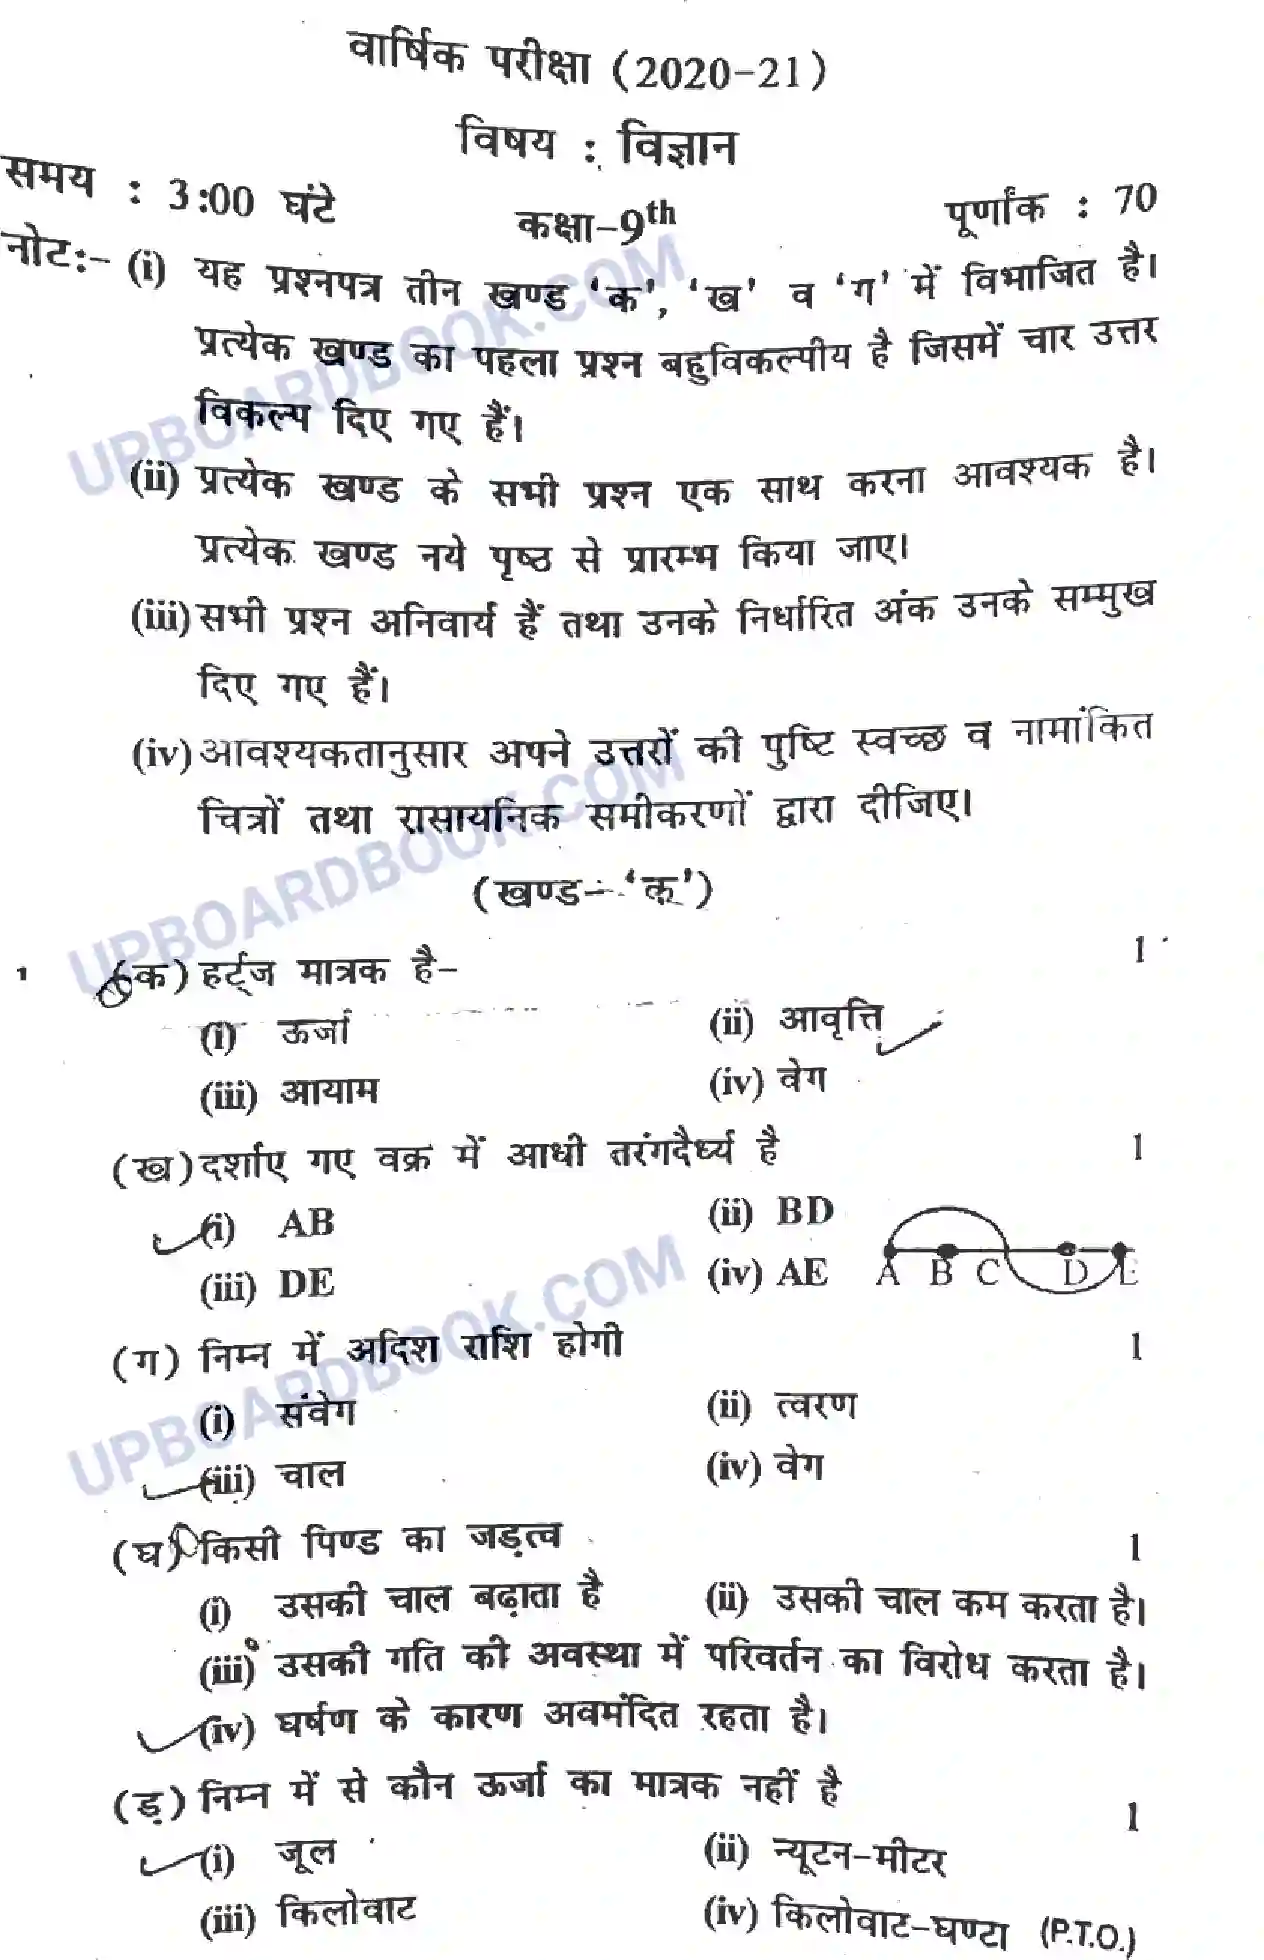 वार्षिक परीक्षा (2020-21)
विषय : विज्ञान
समय : 3:00 घंटे
कक्षा-9th
पूर्णांक : 70
नोटः- (i) यह प्रश्नपत्र तीन खण्ड ‘क’, ‘ख’ व ‘ग’ में विभाजित है।
प्रत्येक खण्ड का पहला प्रश्न बहुविकल्पीय है जिसमें चार उत्तर
विकल्प दिए गए हैं।
(ii) प्रत्येक खण्ड के सभी प्रश्न एक साथ करना आवश्यक है।
प्रत्येक खण्ड नये पृष्ठ से प्रारम्भ किया जाए।
(iii) सभी प्रश्न अनिवार्य हैं तथा उनके निर्धारित अंक उनके सम्मुख
दिए गए हैं।
(iv) आवश्यकतानुसार अपने उत्तरों की पुष्टि स्वच्छ व नामांकित
चित्रों तथा रासायनिक समीकरणों द्वारा दीजिए।
(खण्ड- ‘क’)
1 (क) हर्ट्ज मात्रक है- 1
(i) ऊर्जा (ii) आवृत्ति
(iii) आयाम (iv) वेग
(ख) दर्शाए गए वक्र में आधी तरंगदैर्ध्य है 1
(i) AB (ii) BD
(iii) DE (iv) AE
A B C D E
(ग) निम्न में अदिश राशि होगी 1
(i) संवेग (ii) त्वरण
(iii) चाल (iv) वेग
(घ) किसी पिण्ड का जड़त्व 1
(i) उसकी चाल बढ़ाता है (ii) उसकी चाल कम करता है।
(iii) उसकी गति की अवस्था में परिवर्तन का विरोध करता है।
(iv) घर्षण के कारण अवमंदित रहता है।
(ड़) निम्न में से कौन ऊर्जा का मात्रक नहीं है 1
(i) जूल (ii) न्यूटन-मीटर
(iii) किलोवाट (iv) किलोवाट-घण्टा (P.T.O.)
UPBOARDBOOK.COM
UPBOARDBOOK.COM
UPBOARDBOOK.COM